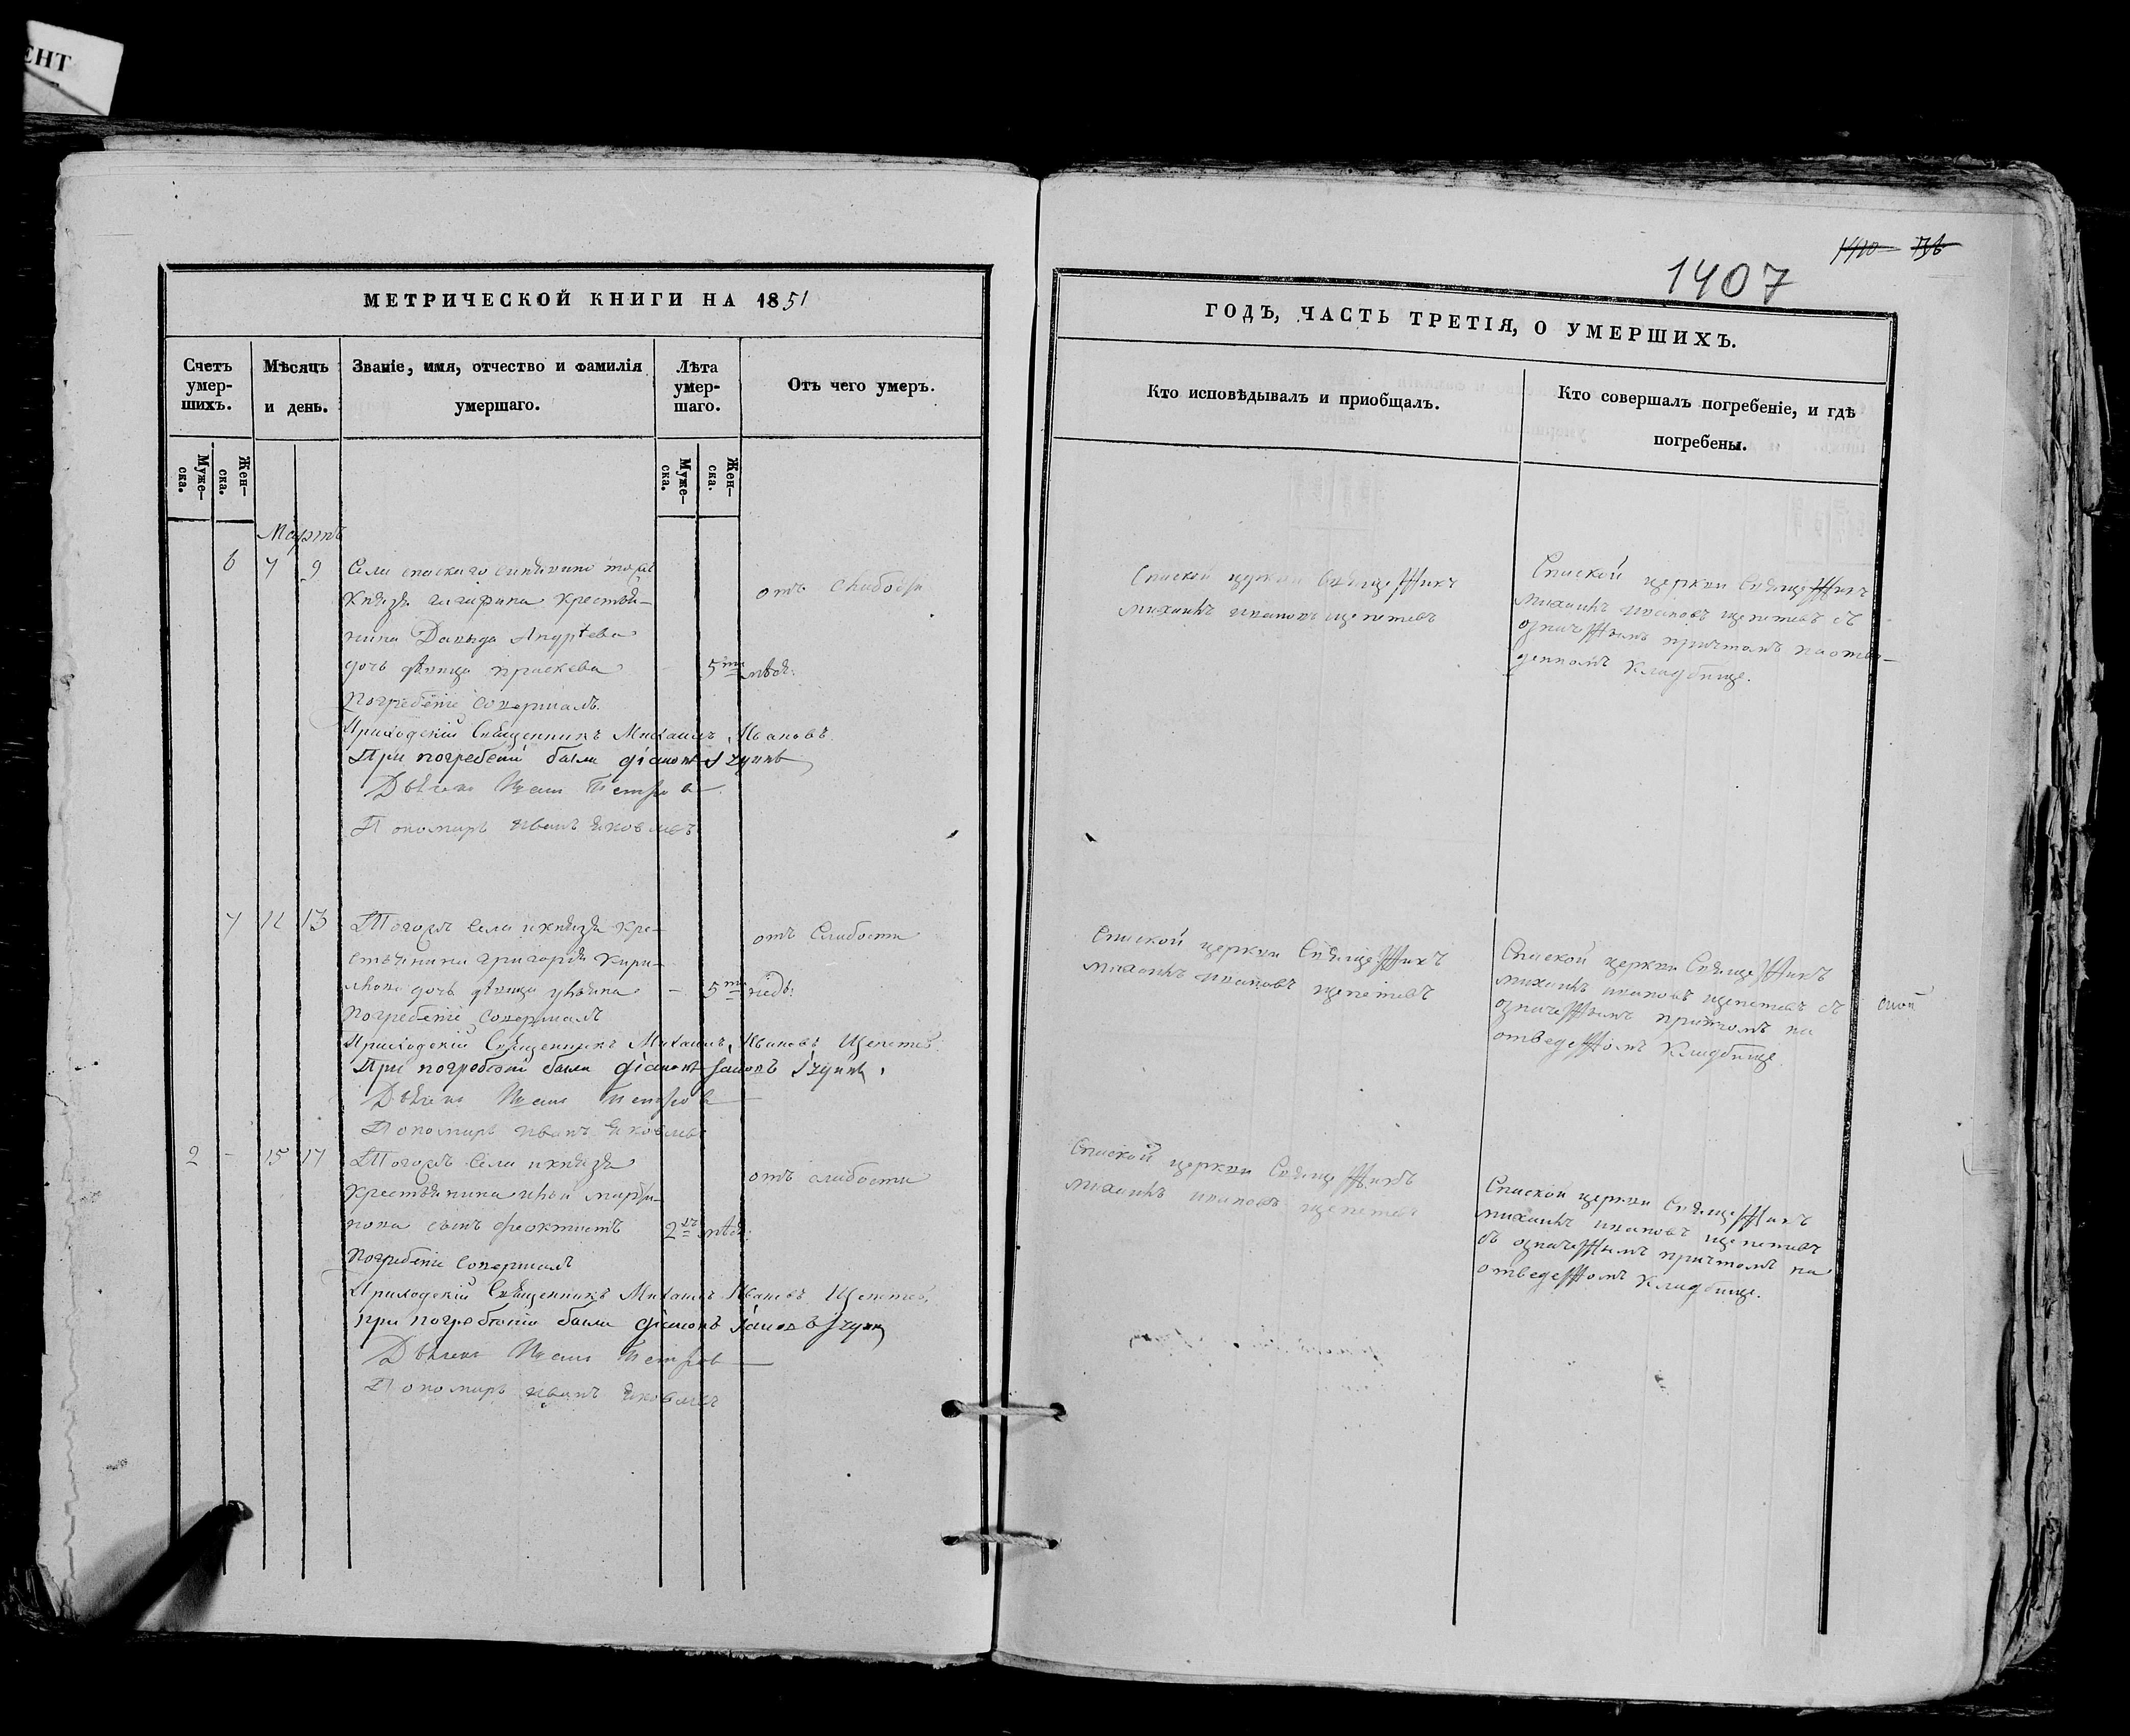 ЕНТ
1407
МЕТРИЧЕСКОЙ КНИГИ НА 1851
ГОДЪ, ЧАСТЬ ТРЕТІЯ, О УМЕРШИХЪ.
Счетъ умер-
шихъ.
Мѣсяцъ
и день.
Званіе, имя, отчество и фамилія
умершаго.
Лѣта
умер-
шаго.
Отъ чего умеръ.
Кто исповѣдывалъ и пріобщалъ.
Кто совершалъ погребеніе, и гдѣ
погребены.
Муже-
ска.
Жен-
ска.
Муже-
ска.
Жен-
ска.
Мартъ
6 7 9 Села
Князя крестья-
нина Давыда Андреева
дочь дѣвица праскева 5 ти нѣд:
погребеніе совершалъ
Приходскій Священникъ Михаилъ Ивановъ
При погребеніи были діаконъ
Дьячекъ Иванъ Петровъ
Пономарь иванъ яковлевъ
отъ слабости
Спаской церкви Священникъ
михаилъ ивановъ щепетевъ
Спаской церкви Священникъ
михаилъ ивановъ щепетевъ съ
означеннымъ причтомъ на отве-
денномъ кладбище.
7 12 13 Тогожъ села и князя кре-
стьянина григорья кири-
лова дочь дѣвица ульяна - 5 ти нѣд:
погребеніе совершалъ
Приходскій Священникъ Михаилъ Ивановъ Щепетев
При погребеніи были діаконъ
Дьячекъ Иванъ Петровъ
Пономарь иванъ яковлевъ
отъ слабости
Спаской церкви Священникъ
михаилъ ивановъ щепетевъ
Спаской церкви Священникъ
михаилъ ивановъ щепетевъ съ
означеннымъ причтомъ на
отведенномъ кладбище
2 - 15 17 Тогожъ села и князя
крестьянина ильи
сынъ феоктистъ 2 хъ нѣд:
погребеніе совершалъ
Приходскій Священникъ Михаилъ Ивановъ Щепетев
при погребеніи были діаконъ
Дьячекъ Иванъ Петровъ
Пономарь иванъ яковлевъ
отъ слабости
Спаской церкви Священникъ
михаилъ ивановъ щепетевъ
Спаской церкви Священникъ
михаилъ ивановъ щепетевъ
съ означеннымъ причтомъ на
отведенномъ кладбище.